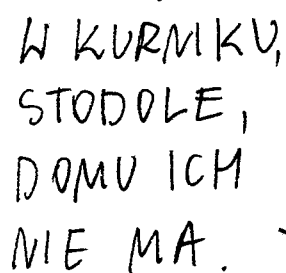 W KURNIKU,
STODOLE,
DOMU ICH
NIE MA.